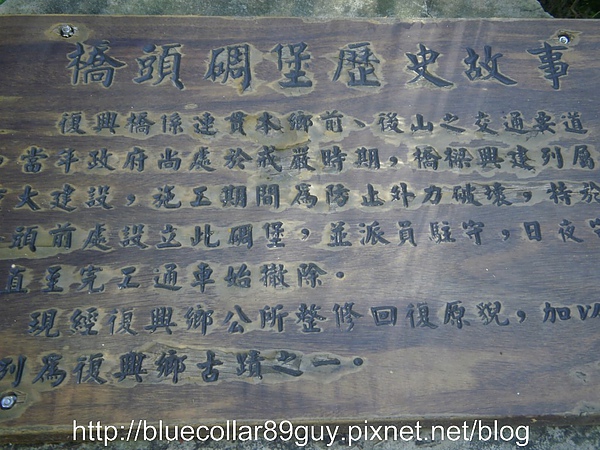 橋頭碉堡歷史故事
復興橋係連貫本鄉前、後山之交通要道
當年政府尚處於戒嚴時期,橋樑興建列屬
大建設,施工期間為防止外力破壞,特於
頭前處設立此碉堡,並派員駐守,日夜
直至完工通車始撤除.
現經復興鄉公所整修回復原貌,加以
列為復興鄉古蹟之一.
http://bluecollar89guy.pixnet.net/blog